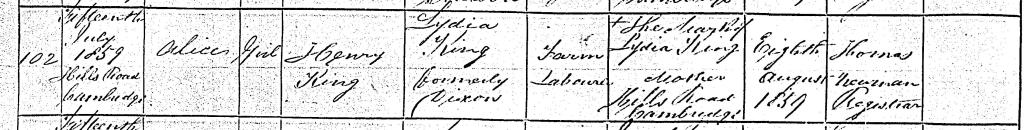 102
Fifteenth
July
1859
Hills Road
Cambridge
Alice
Girl
Henry
King
Lydia
King
formerly
Dixon
Farm
Labourer
+ The Mark of
Lydia King
Mother
Hills Road
Cambridge
Eighth
August
1859
Thomas
Newman
Registrar
Fifteenth